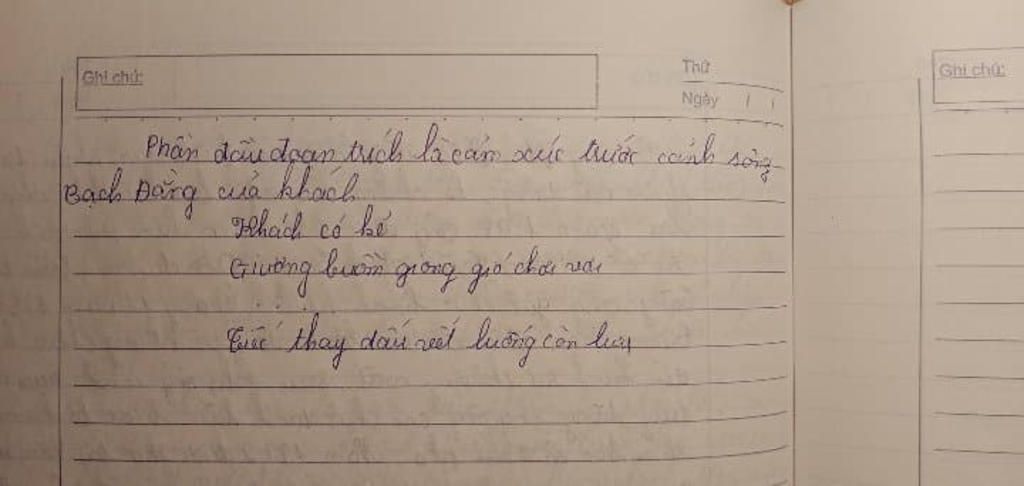 Ghi chú:
Thứ
Ngày / /
Ghi chú:
Phần đầu đoạn trích là cảm xúc trước cảnh sông
Bạch Đằng của khách
Khách có kẻ
Giương buồm giong gió chơi vơi
. . .
Tiếc thay dấu vết luống còn lưu